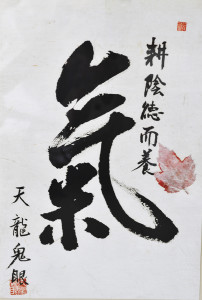 耕陰德而養
氣
天龍鬼眼